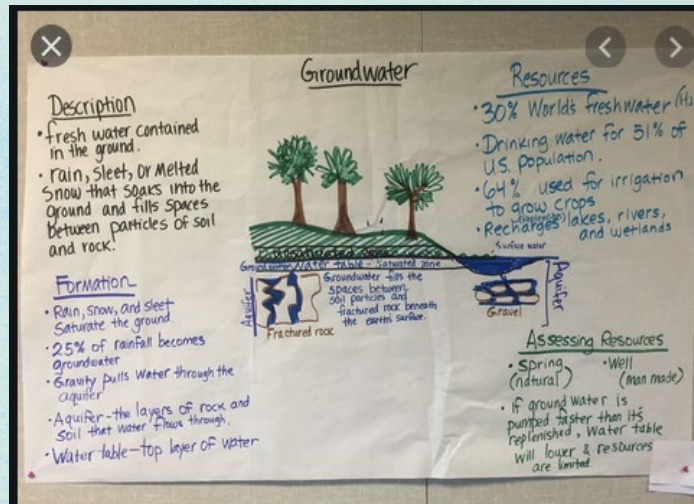 Groundwater
Description
• fresh water contained
in the ground.
• rain, sleet, or melted
snow that soaks into the
ground and fills spaces
between particles of soil
and rock.
Formation
• Rain, snow, and sleet
saturate the ground.
• 25% of rainfall becomes
groundwater
• Gravity pulls water through the
aquifer
• Aquifer - the layers of rock and
soil that water flows through.
• Water table - top layer of water
Water table - Saturated zone
Aquifer
Fractured rock
Groundwater fills the
spaces between
soil particles and
fractured rock beneath
the earth's surface.
Surface water
Gravel
Aquifer
Resources
• 30% World's freshwater
• Drinking water for 51% of
U.S. population.
• 64% used for irrigation
to grow crops
• Recharges lakes, rivers,
and wetlands
Assessing Resources
• Spring
(natural)
• Well
(man made)
• If ground water is
pumped faster than its
replenished, Water table
will lower & resources
are limited.